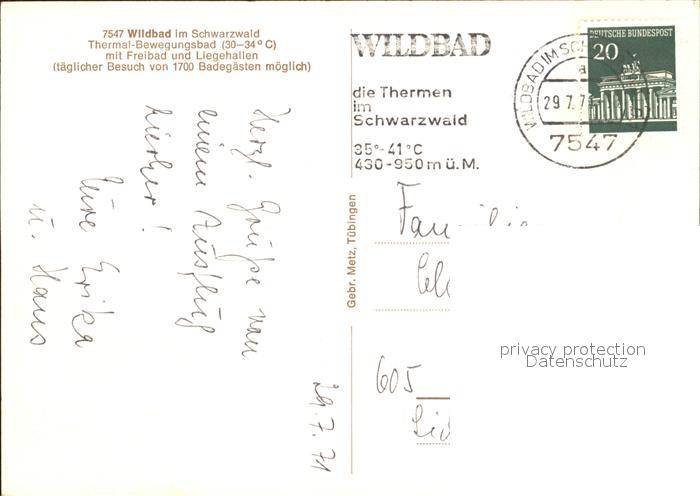 7547 Wildbad im Schwarzwald
Thermal-Bewegungsbad (30–34°C)
mit Freibad und Liegehallen
(täglicher Besuch von 1700 Badegästen möglich)
WILDBAD
die Thermen
im
Schwarzwald
35°-41°C
430-950 m ü. M.
WILDBAD IM SCH
a
29.7.7
7547
DEUTSCHE BUNDESPOST
20
Herzl. Grüße von
einem Ausflug
hierher!
Eure Erika
u. Hans
29.7.71
Gebr. Metz, Tübingen
Familie
605
privacy protection
Datenschutz